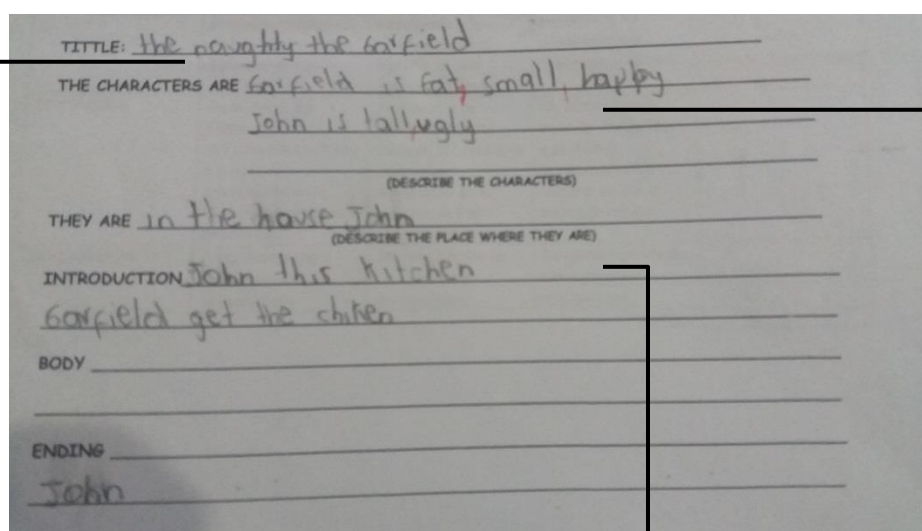 TITTLE: the naughty the Garfield
THE CHARACTERS ARE Garfield is fat, small, happy
John is tall, ugly
(DESCRIBE THE CHARACTERS)
THEY ARE in the house John
(DESCRIBE THE PLACE WHERE THEY ARE)
INTRODUCTION John this kitchen
Garfield get the chiken
BODY
ENDING
John